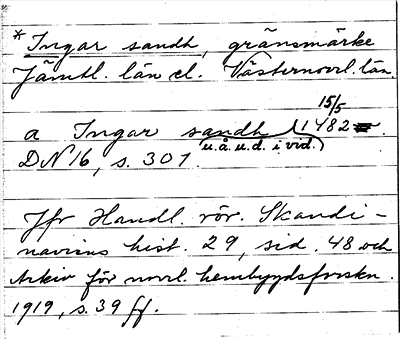 * Ingar sandh, gränsmärke
Jämtl. län el. Västernorrl. län.
15/5
a Ingar sandh 1482.
(u.å.u.d. i vid.)
DN 16, s. 301.
Jfr Handl. rör. Skandi-
naviens hist. 29, sid. 48 och
Arkiv för norrl. hembygdsforskn.
1919, s. 39 ff.